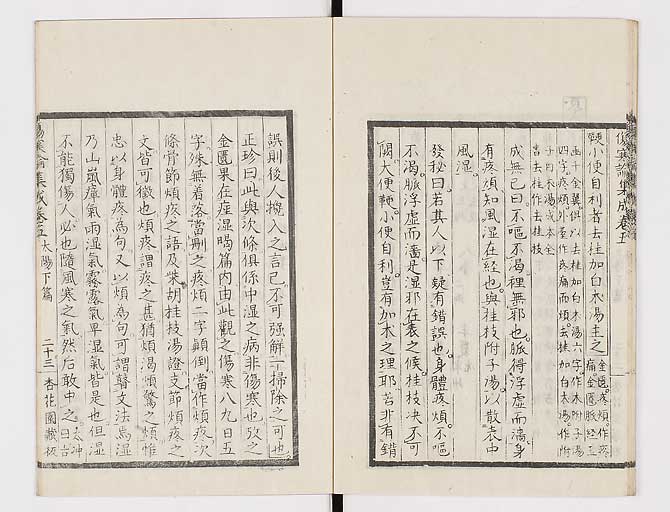 傷寒論集成卷五
鞕小便自利者去桂加白朮湯主之 金匱疼煩作疼
痛金匱脈經三
四字疼煩外臺作疼痛而煩去桂加白朮湯作附
子白朮湯成本全
書去桂作去桂枝
成無已曰不嘔不渴裡無邪也脈得浮虛而濇身
有疼煩知風湿在經也與桂枝附子湯以散表中
風湿
發秘曰若其人以下疑有錯誤也身體疼煩不嘔
不渴脈浮虛而濇是湿邪在表之候桂枝決不可
闕大便鞕小便自利豈有加朮之理耶若非有錯
誤則後人攙入之言已不可强解一掃除之可也
正珍曰此與次條俱係中湿之病非傷寒也攷之
金匱果在痙湿暍篇内由此觀之傷寒八九日五
字殊無着落當刪之疼煩二字顛倒當作煩疼次
條骨節煩疼之語及柴胡桂枝湯證支節煩疼之
文皆可徵也煩疼謂疼之甚猶煩渴煩驚之煩惟
忠以身體疼為句又以煩為句可謂瞽文法焉湿
乃山嵐瘴氣雨湿氣霧露氣卑湿氣皆是也但湿
不能獨傷人必也隨風寒之氣然后敢中之
傷寒論集成卷五 太陽下篇 二十三 杏花園藏板